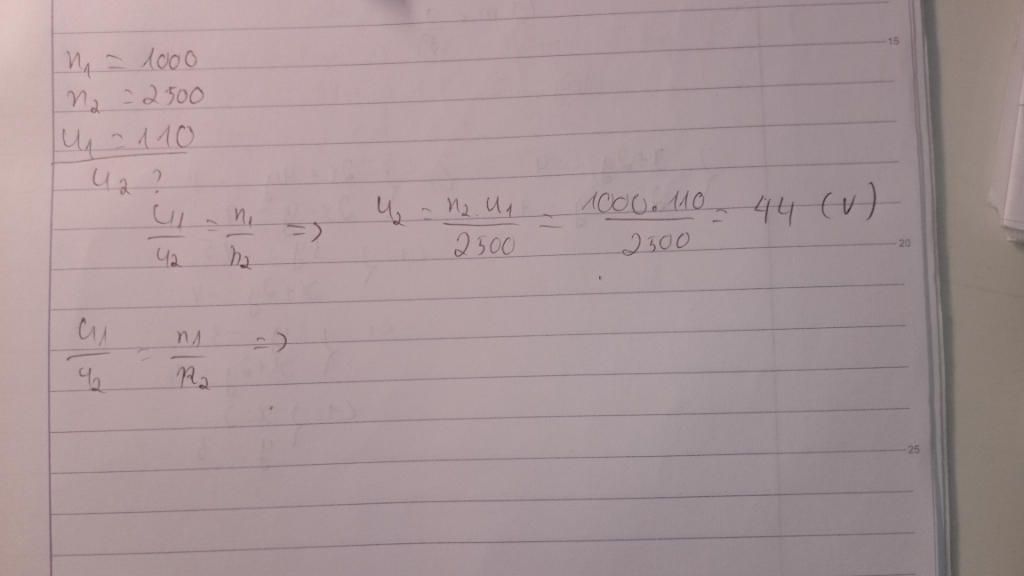 n₁ = 1000
n₂ = 2500
U₁ = 110
U₂ ?
U₁/U₂ = n₁/n₂ => U₂ = n₂.U₁/2500 = 1000.110/2500 = 44 (V)
U₁/U₂ = n₁/n₂ =>
15
20
25